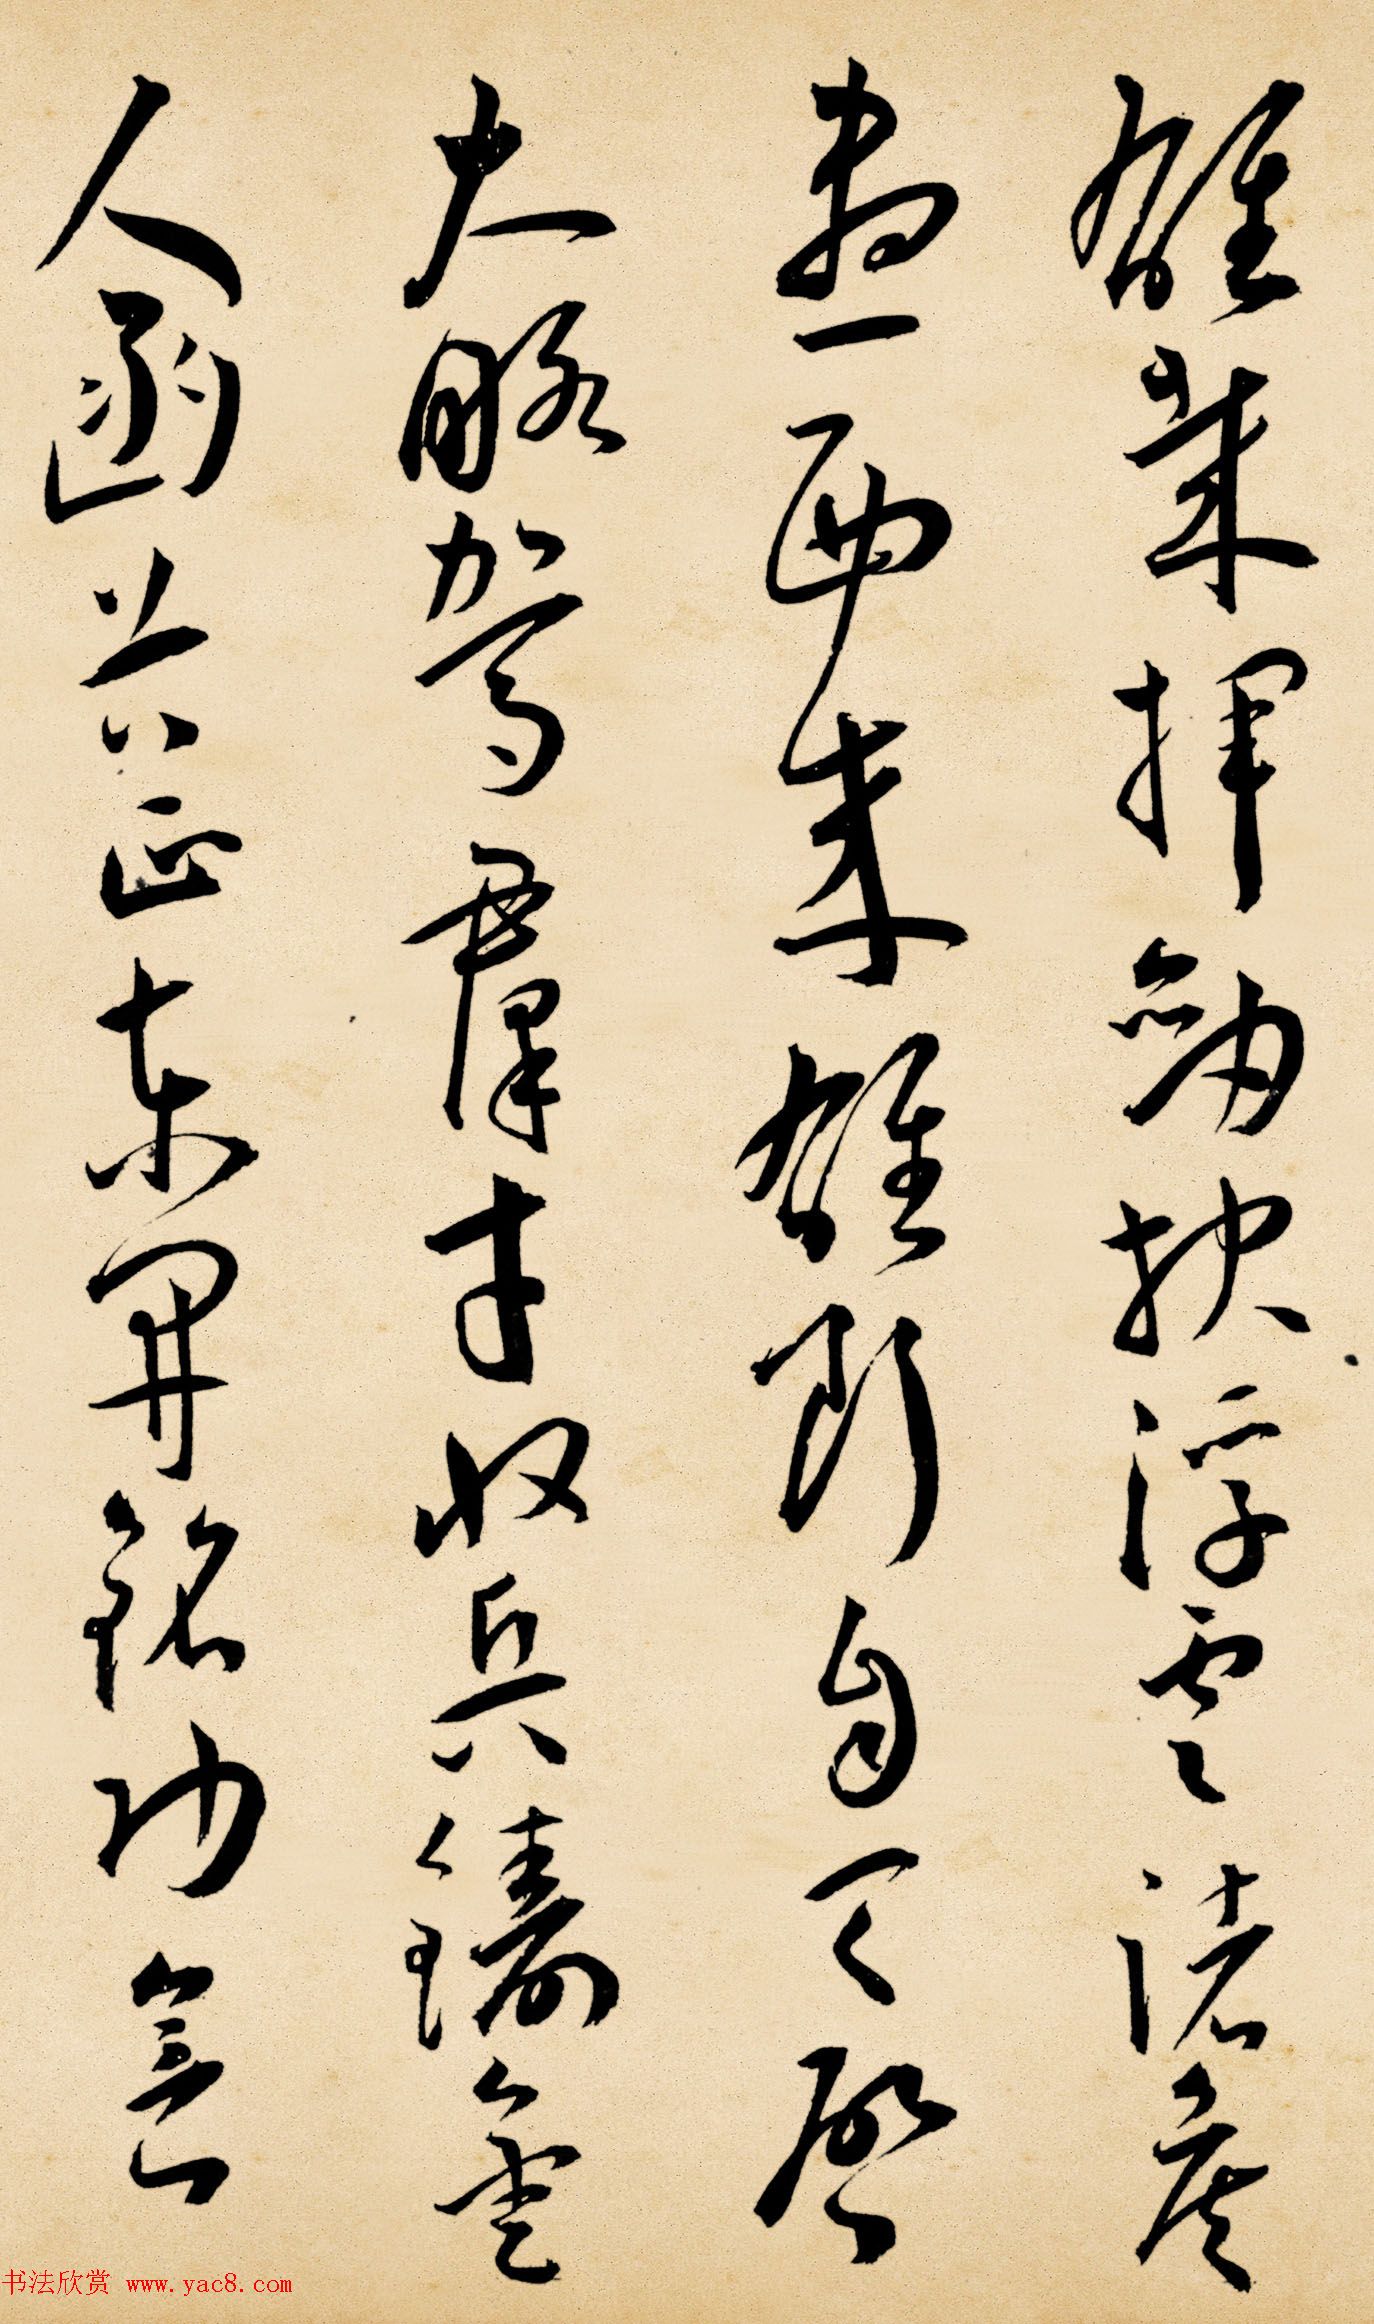 雄哉揮劍抉浮雲諸侯
盡西來雄斷自天啓
大略駕羣才收兵鑄金
人函谷正東開銘功會
书法欣赏 www.yac8.com